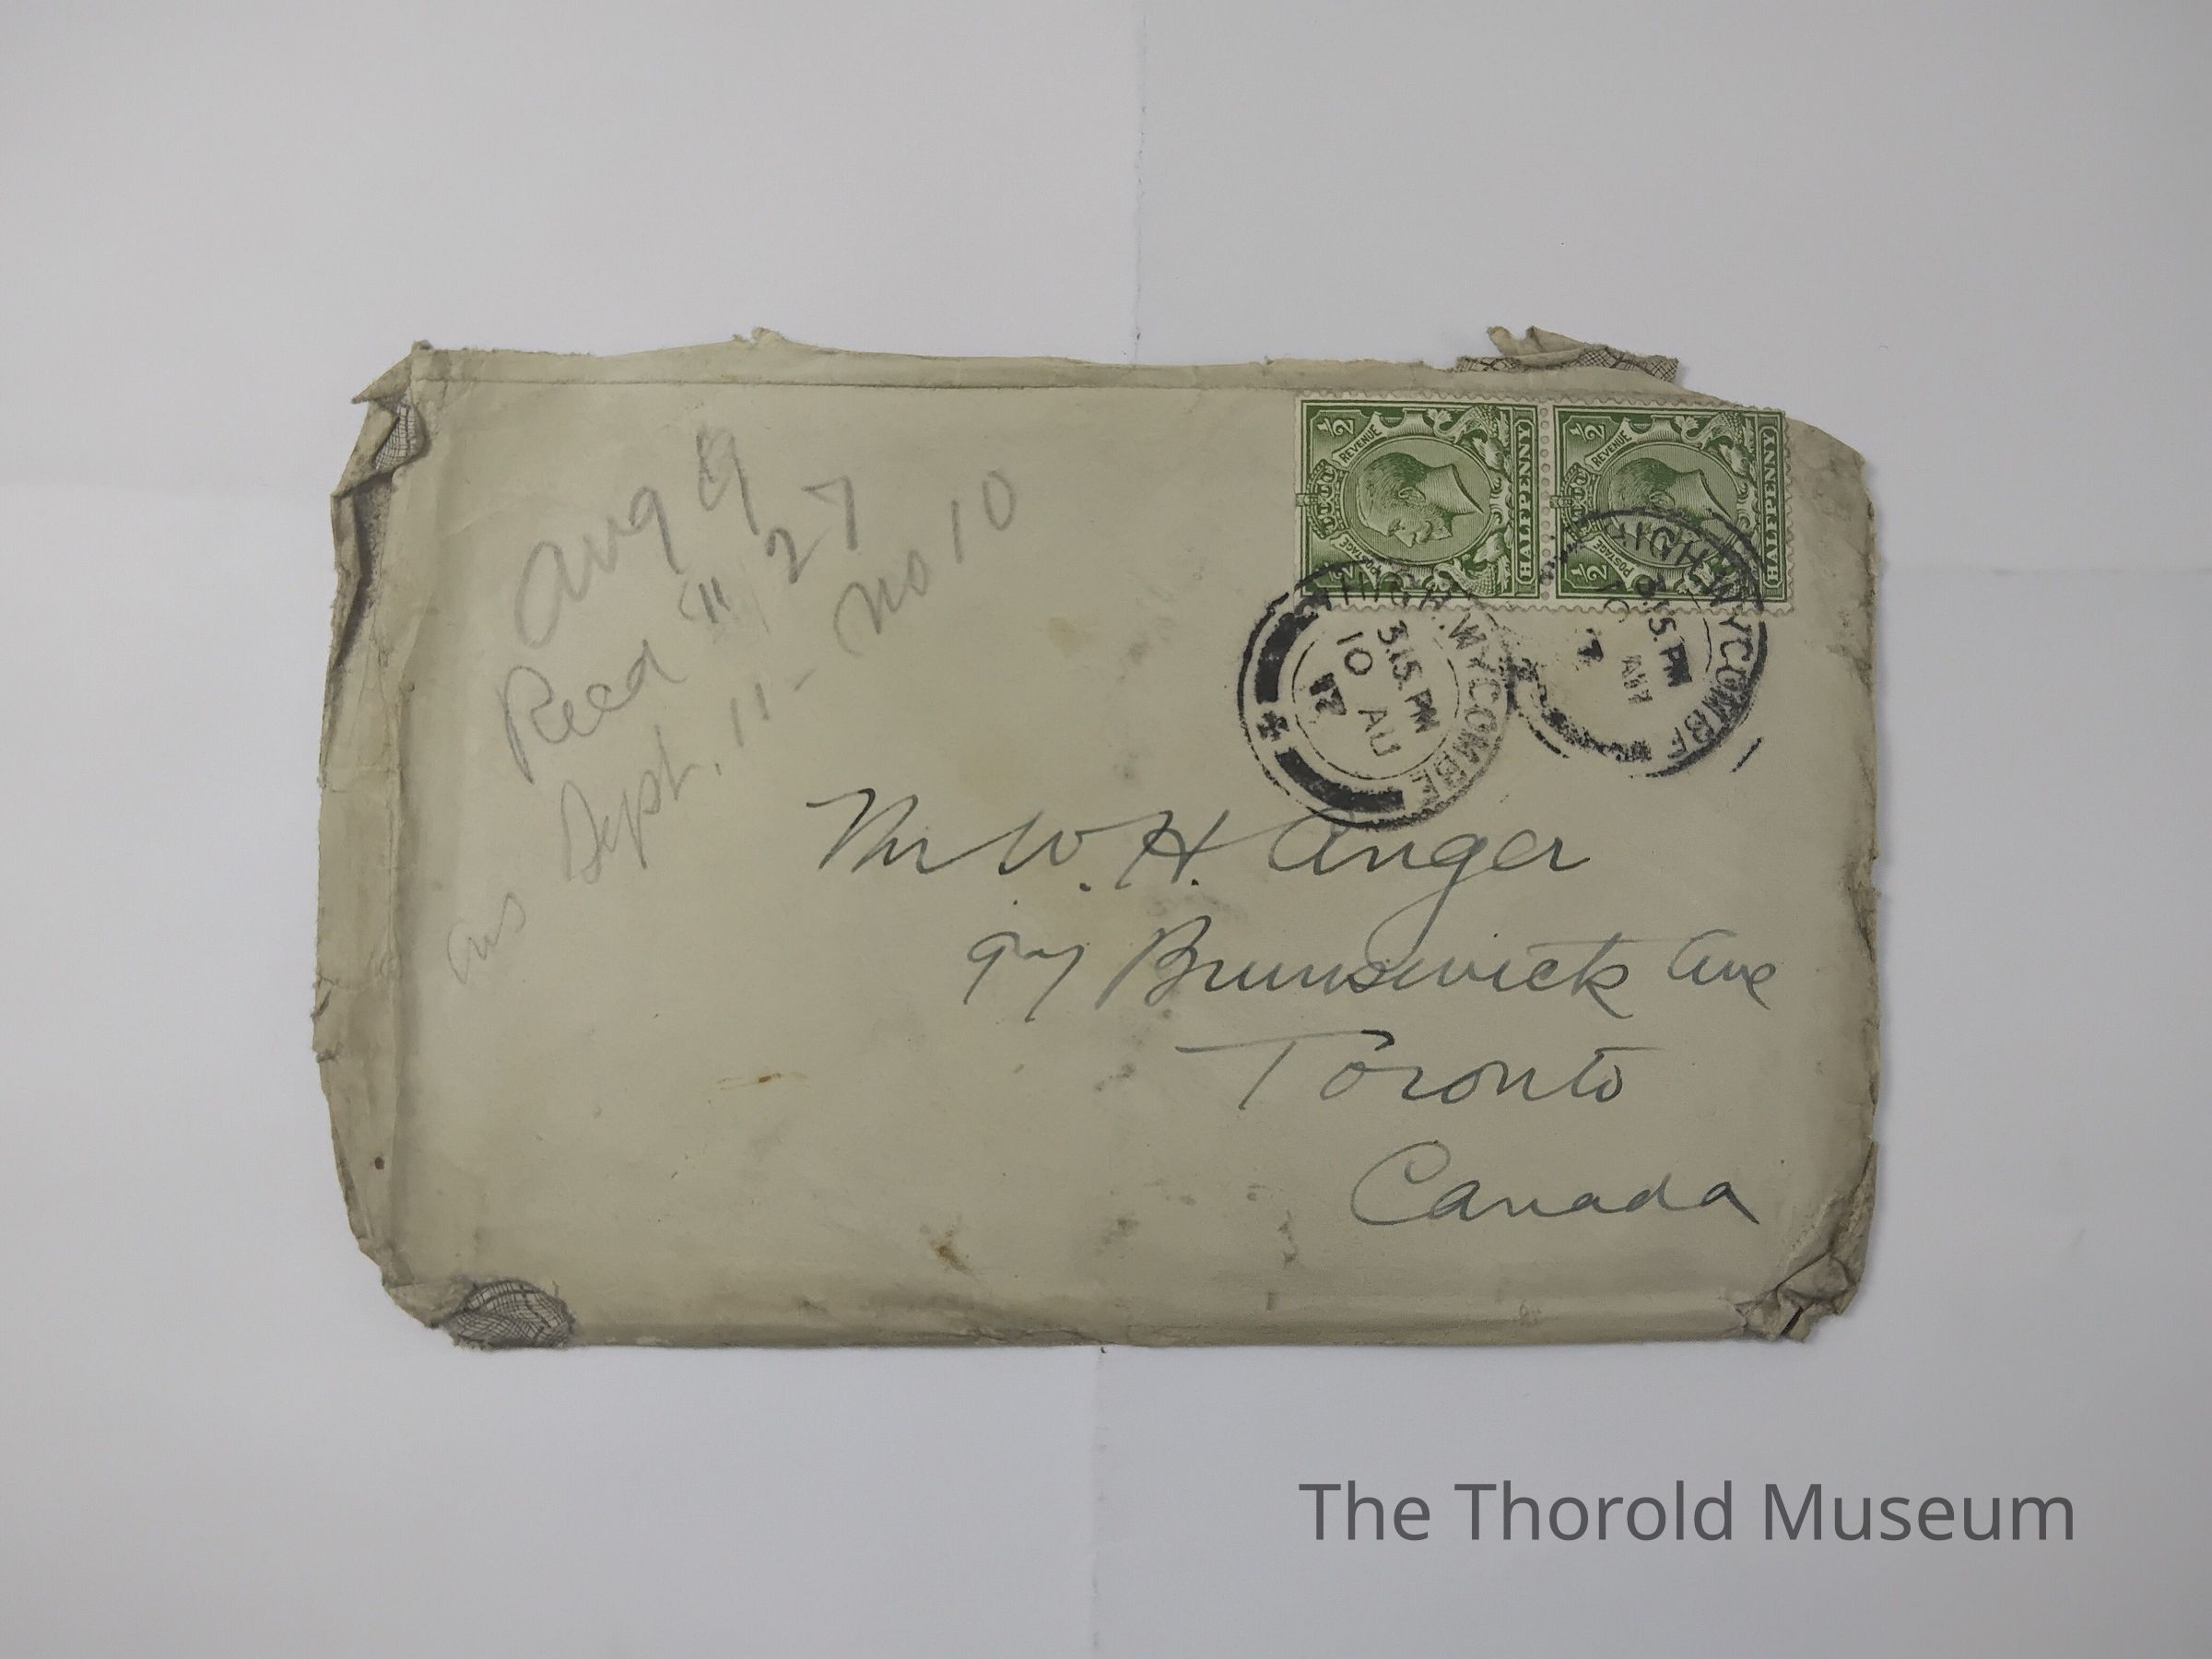 Aug 9
Recd " 27
ans Sept. 11 - No 10
½ REVENUE POSTAGE ½ HALFPENNY
½ REVENUE POSTAGE ½ HALFPENNY
HIGH.WYCOMBE
3.15.PM
10 AU
17
HIGH.WYCOMBE
3.15.PM
AU
17
Mr W. H. Anger
97 Brunswick Ave
Toronto
Canada
The Thorold Museum